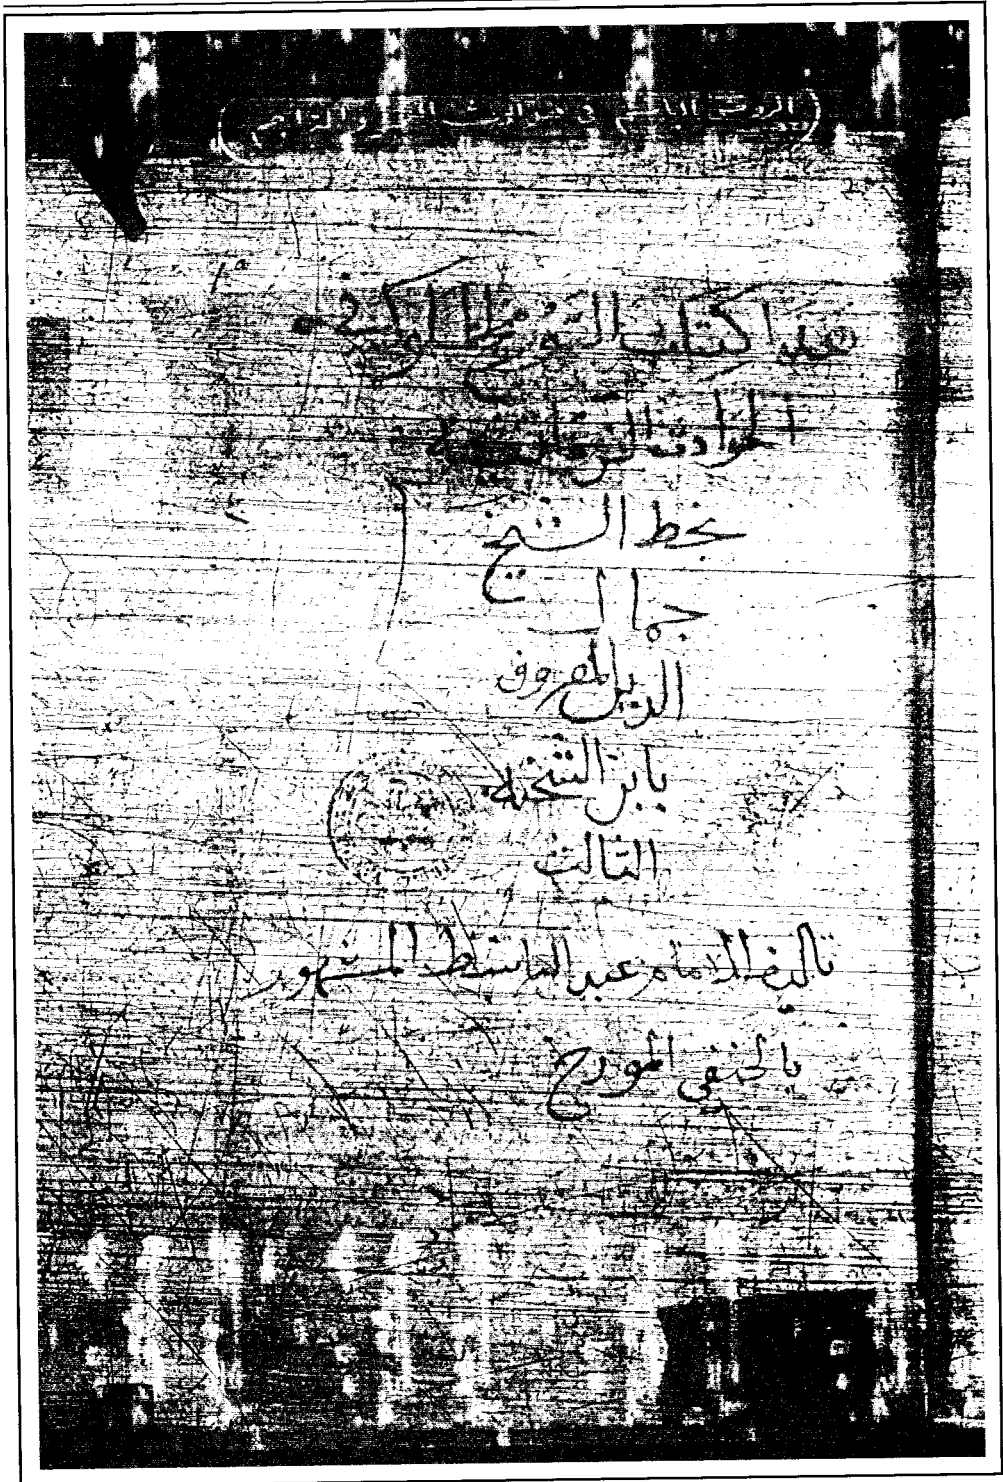 (الروض الباسم في حوادث العمر والتراجم)
هذا كتاب التوريخ
الحوادث
بخط الشيخ
جمال
الدين المعروف
بابن الشحنه
الثالث
تاليف الامام عبد الباسط المشهور
بالحنفي المورخ